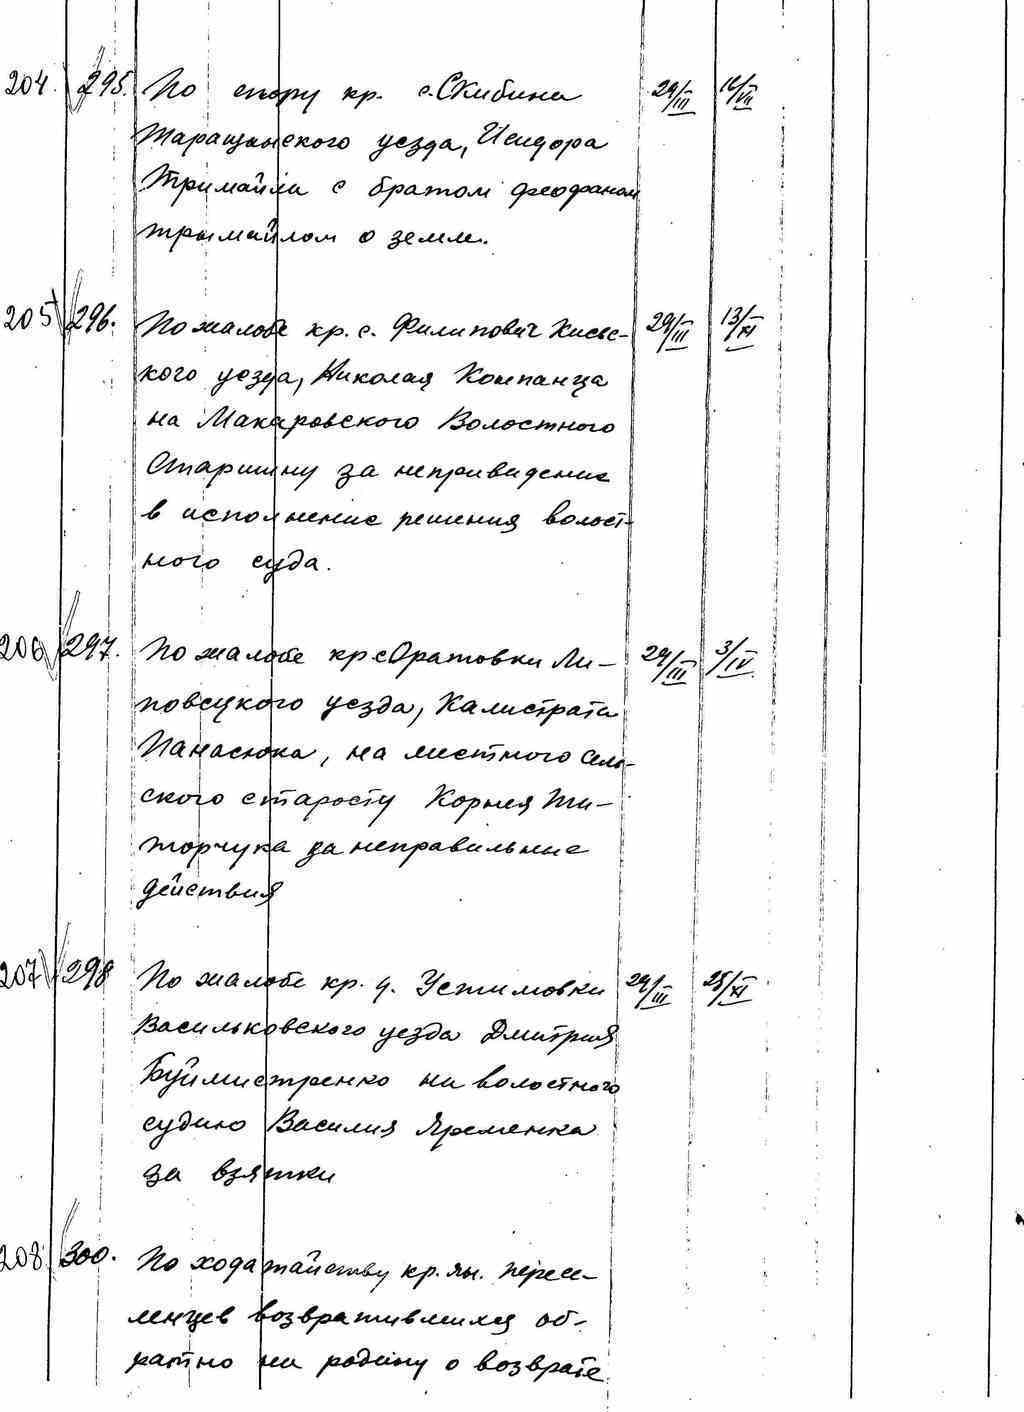 204. 295. По спору кр. с. Скибина 29/III 16/VII
Таращанского уезда, Исидора
Тримайла с братом Феофаном
Трымайлом о земле.
205 296. По жалобе кр. с. Филипович Киевс- 29/III 13/XI
кого уезда, Николая Компанца
на Макаровского Волостного
Старшину за неприведение
в исполнение решения волост-
ного суда.
206 297. По жалобе кр с Оратовки Ли- 29/III 3/IV.
повецкого уезда, Калистрата
Панасюка, на местного сель-
ского старосту Корнея Ти-
торчука за неправильные
действия
207 298 По жалобе кр. д. Устимовки 29/III 25/XI
Васильковского уезда Дмитрия
Буймистренко на волостного
судью Василия Яременка
за взятки
208 300. По ходатайству кр.ян. пересе-
ленцев возвратившихся об-
ратно на родину о возврате